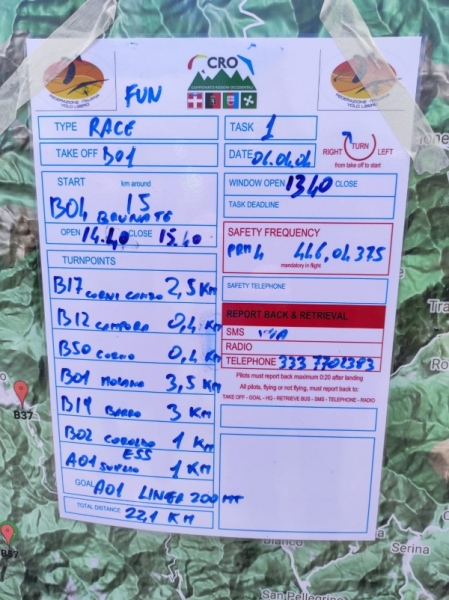 CRO
FUN
TYPE RACE
TASK 1
TAKE OFF B01
RIGHT TURN LEFT
from take off to start
START km around
B04 15
WINDOW OPEN 13.40 CLOSE
TASK DEADLINE
OPEN 14.40 CLOSE 15.40
SAFETY FREQUENCY
446,04375
mandatory in flight
TURNPOINTS
B17 CORNI CANZO 2,5 KM
SAFETY TELEPHONE
B12 0,4 KM
REPORT BACK & RETRIEVAL
SMS
B50 CORNO 0,4 KM
RADIO
TELEPHONE
Pilots must report back maximum 0:20 after landing
All pilots, flying or not flying, must report back to:
TAKE OFF - GOAL - HQ - RETRIEVE BUS - SMS - TELEPHONE - RADIO
B01 3,5 KM
B19 BARRO 3 KM
B02 1 KM
ESS
A01 SUELLO 1 KM
GOAL A01 LINEA 200 MT
TOTAL DISTANCE 22,1 KM
B37
Serina
San Pellegrino